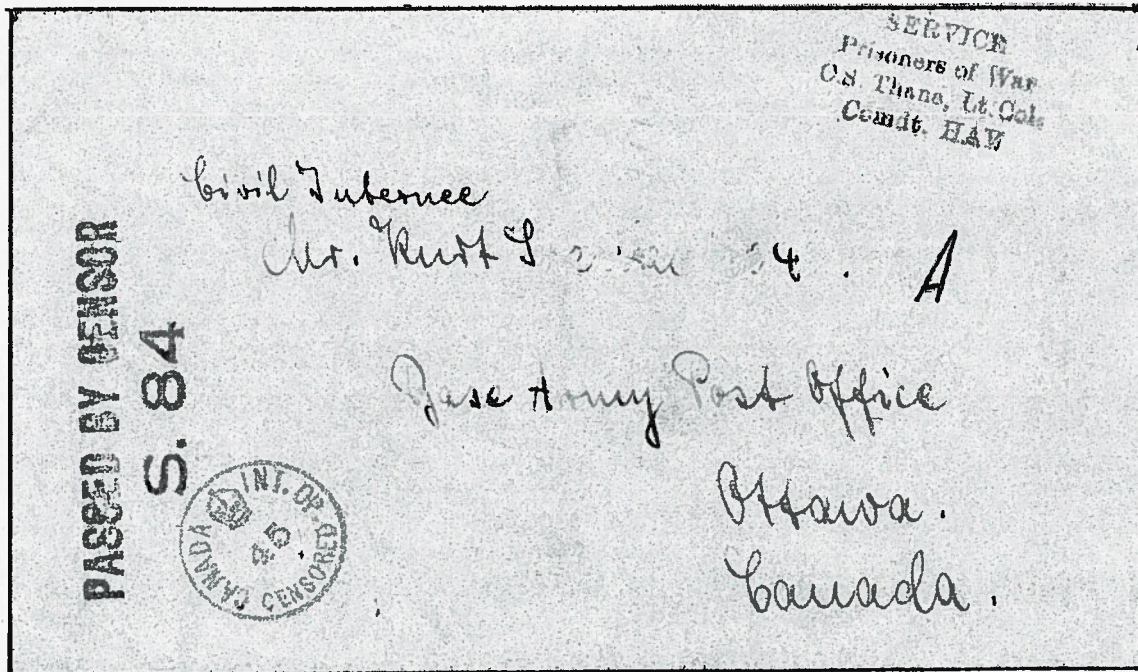 SERVICE
Prisoners of War
C.S. Thane, Lt. Col.
Comdt.
Civil Internee
Mr. Kurt
4. A
Base Army Post Office
Ottawa.
Canada.
PASSED BY CENSOR
S. 84
CANADA INT. OP.
45.
CENSORED